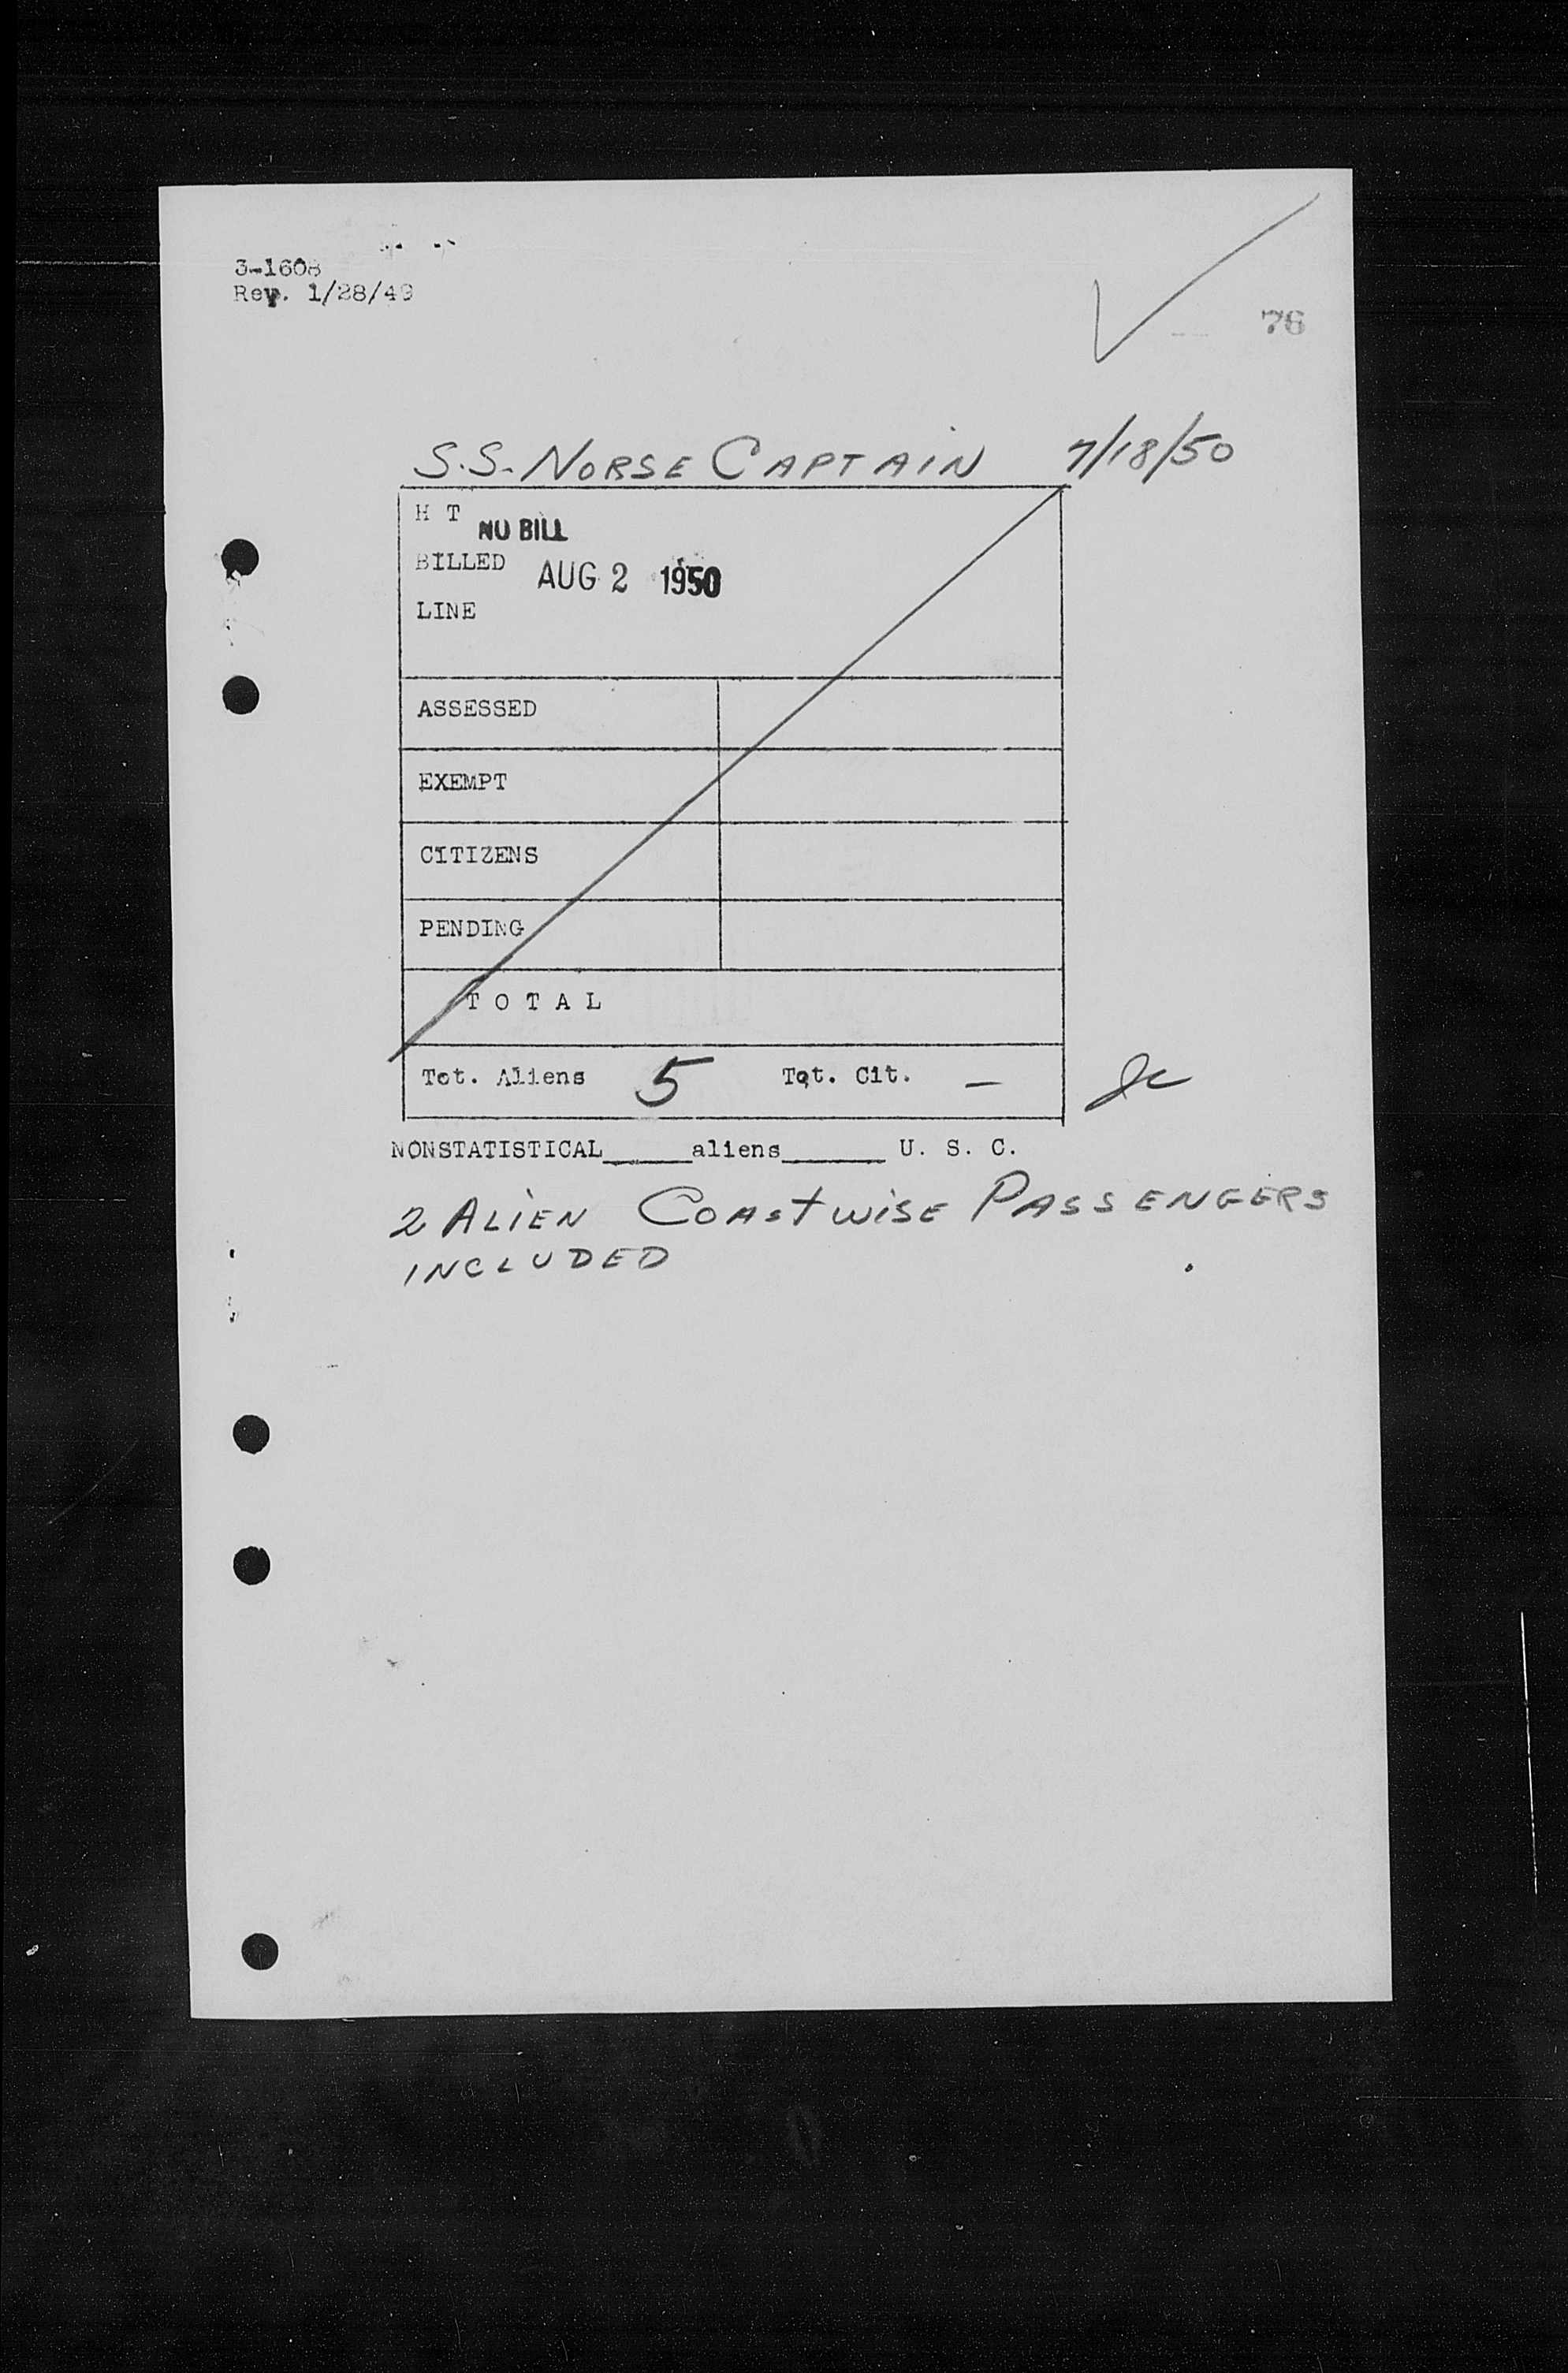 3-1608
Rev. 1/28/49
76
S.S. NORSE CAPTAIN 7/18/50
H T
NO BILL
BILLED AUG 2 1950
LINE
ASSESSED
EXEMPT
CITIZENS
PENDING
TOTAL
Tot. Aliens 5 Tot. Cit. —
NONSTATISTICAL_____aliens______ U. S. C.
2 ALIEN COASTWISE PASSENGERS
INCLUDED